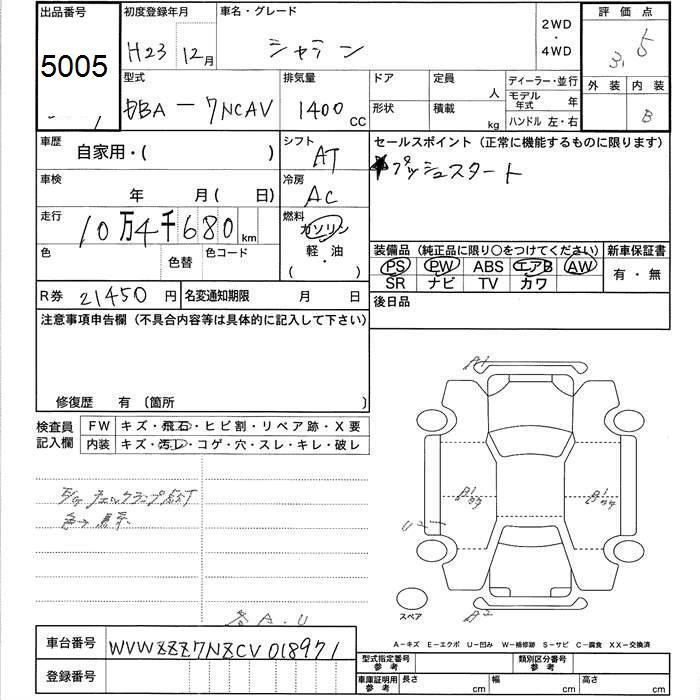 出品番号
5005
初度登録年月
H23 12月
車名・グレード
シャラン
2WD
・
4WD
評価点
3.5
外装 内装
B
型式
DBA-7NCAV
排気量
1400
CC
ドア
形状
定員
人
積載
kg
ディーラー・並行
モデル年式 年
ハンドル 左・右
車歴
自家用・( )
シフト
AT
セールスポイント (正常に機能するものに限ります)
★プッシュスタート
車検
年 月( 日)
冷房
AC
走行
10万4千680 km
燃料
ガソリン
軽・油
・
( )
色
色替
色コード
装備品 (純正品に限り○をつけてください)
PS PW ABS エアB AW
SR ナビ TV カワ
新車保証書
有・無
R券 21450 円
名変通知期限 月 日
後日品
注意事項申告欄 (不具合内容等は具体的に記入して下さい)
修復歴 有 〔箇所 〕
検査員
記入欄
FW キズ・飛石・ヒビ割・リペア跡・X要
内装 キズ・汚レ・コゲ・穴・スレ・キレ・破レ
チェックランプ
色→黒系
A・U
A1
U21
スペア
車台番号 WVWZZZ7NZCV018971
登録番号
A-キズ E-エクボ U-凹み W-補修跡 S-サビ C-腐食 XX-交換済
型式指定番号
参考
類別区分番号
参考
車庫証明用
参考
長さ cm
幅 cm
高さ cm